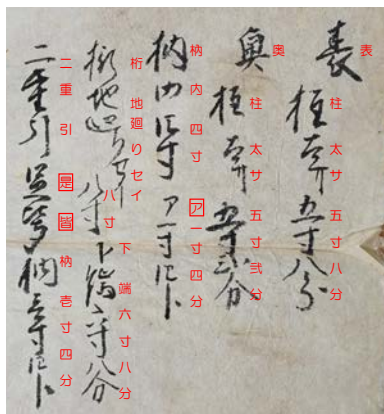 表
柱太サ五寸八分
奥
柱太サ五寸弐分
枘内四寸ア一寸四分
桁地廻りセイ八寸下端六寸八分
二重引是皆枘壱寸四分